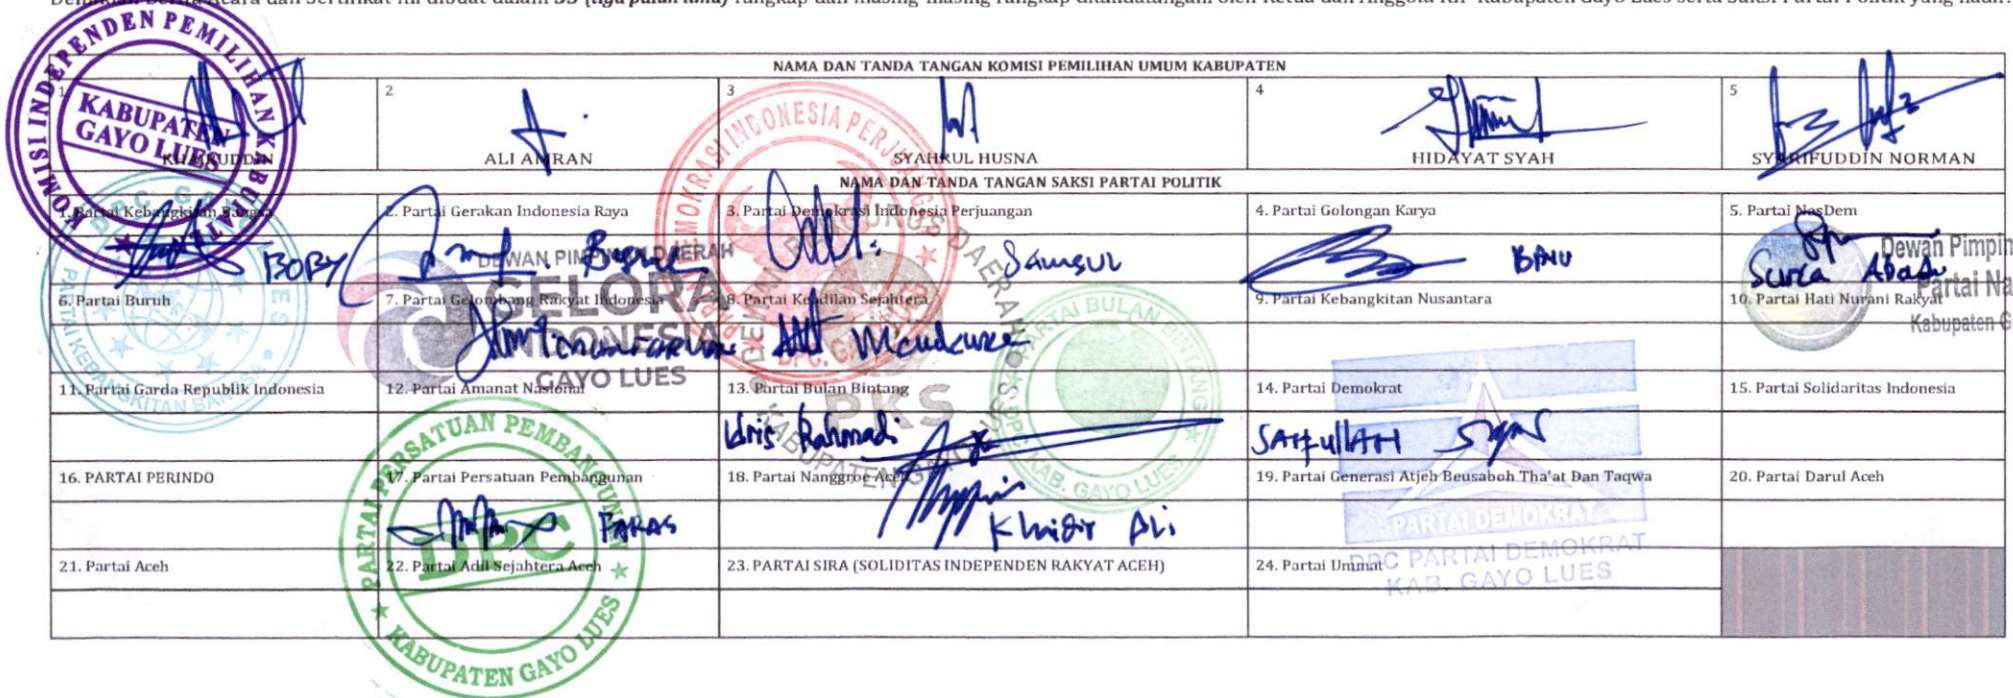 (tiga puluh lima)
NAMA DAN TANDA TANGAN KOMISI PEMILIHAN UMUM KABUPATEN
1 2 3 4 5
KHAIRUDDIN ALI AMRAN SYAHRUL HUSNA HIDAYAT SYAH SYARIFUDDIN NORMAN
NAMA DAN TANDA TANGAN SAKSI PARTAI POLITIK
1. Partai Kebangkitan Bangsa 2. Partai Gerakan Indonesia Raya 3. Partai Demokrasi Indonesia Perjuangan 4. Partai Golongan Karya 5. Partai NasDem
BOBY Samsul Surca Abadi
6. Partai Buruh 7. Partai Gelombang Rakyat Indonesia 8. Partai Keadilan Sejahtera 9. Partai Kebangkitan Nusantara 10. Partai Hati Nurani Rakyat
11. Partai Garda Republik Indonesia 12. Partai Amanat Nasional 13. Partai Bulan Bintang 14. Partai Demokrat 15. Partai Solidaritas Indonesia
Idris Rahmadi SAIFullAH
16. PARTAI PERINDO 17. Partai Persatuan Pembangunan 18. Partai Nanggroe Aceh 19. Partai Generasi Atjeh Beusaboh Tha'at Dan Taqwa 20. Partai Darul Aceh
FARAS Khidir Ali
21. Partai Aceh 22. Partai Adil Sejahtera Aceh 23. PARTAI SIRA (SOLIDITAS INDEPENDEN RAKYAT ACEH) 24. Partai Ummat
KOMISI INDEPENDEN PEMILIHAN KABUPATEN
KABUPATEN
GAYO LUES
PARTAI KEBANGKITAN BANGSA
DEWAN PIMPINAN DAERAH
GELORA
INDONESIA
GAYO LUES
PARTAI DEMOKRASI INDONESIA PERJUANGAN
DEWAN PENGURUS DAERAH
PKS
KABUPATEN GAYO LUES
PARTAI BULAN BINTANG
DPC KAB. GAYO LUES
Dewan Pimpin
Partai Na
Kabupaten G
PARTAI DEMOKRAT
DPC PARTAI DEMOKRAT
KAB. GAYO LUES
PARTAI PERSATUAN PEMBANGUNAN
DPC
KABUPATEN GAYO LUES